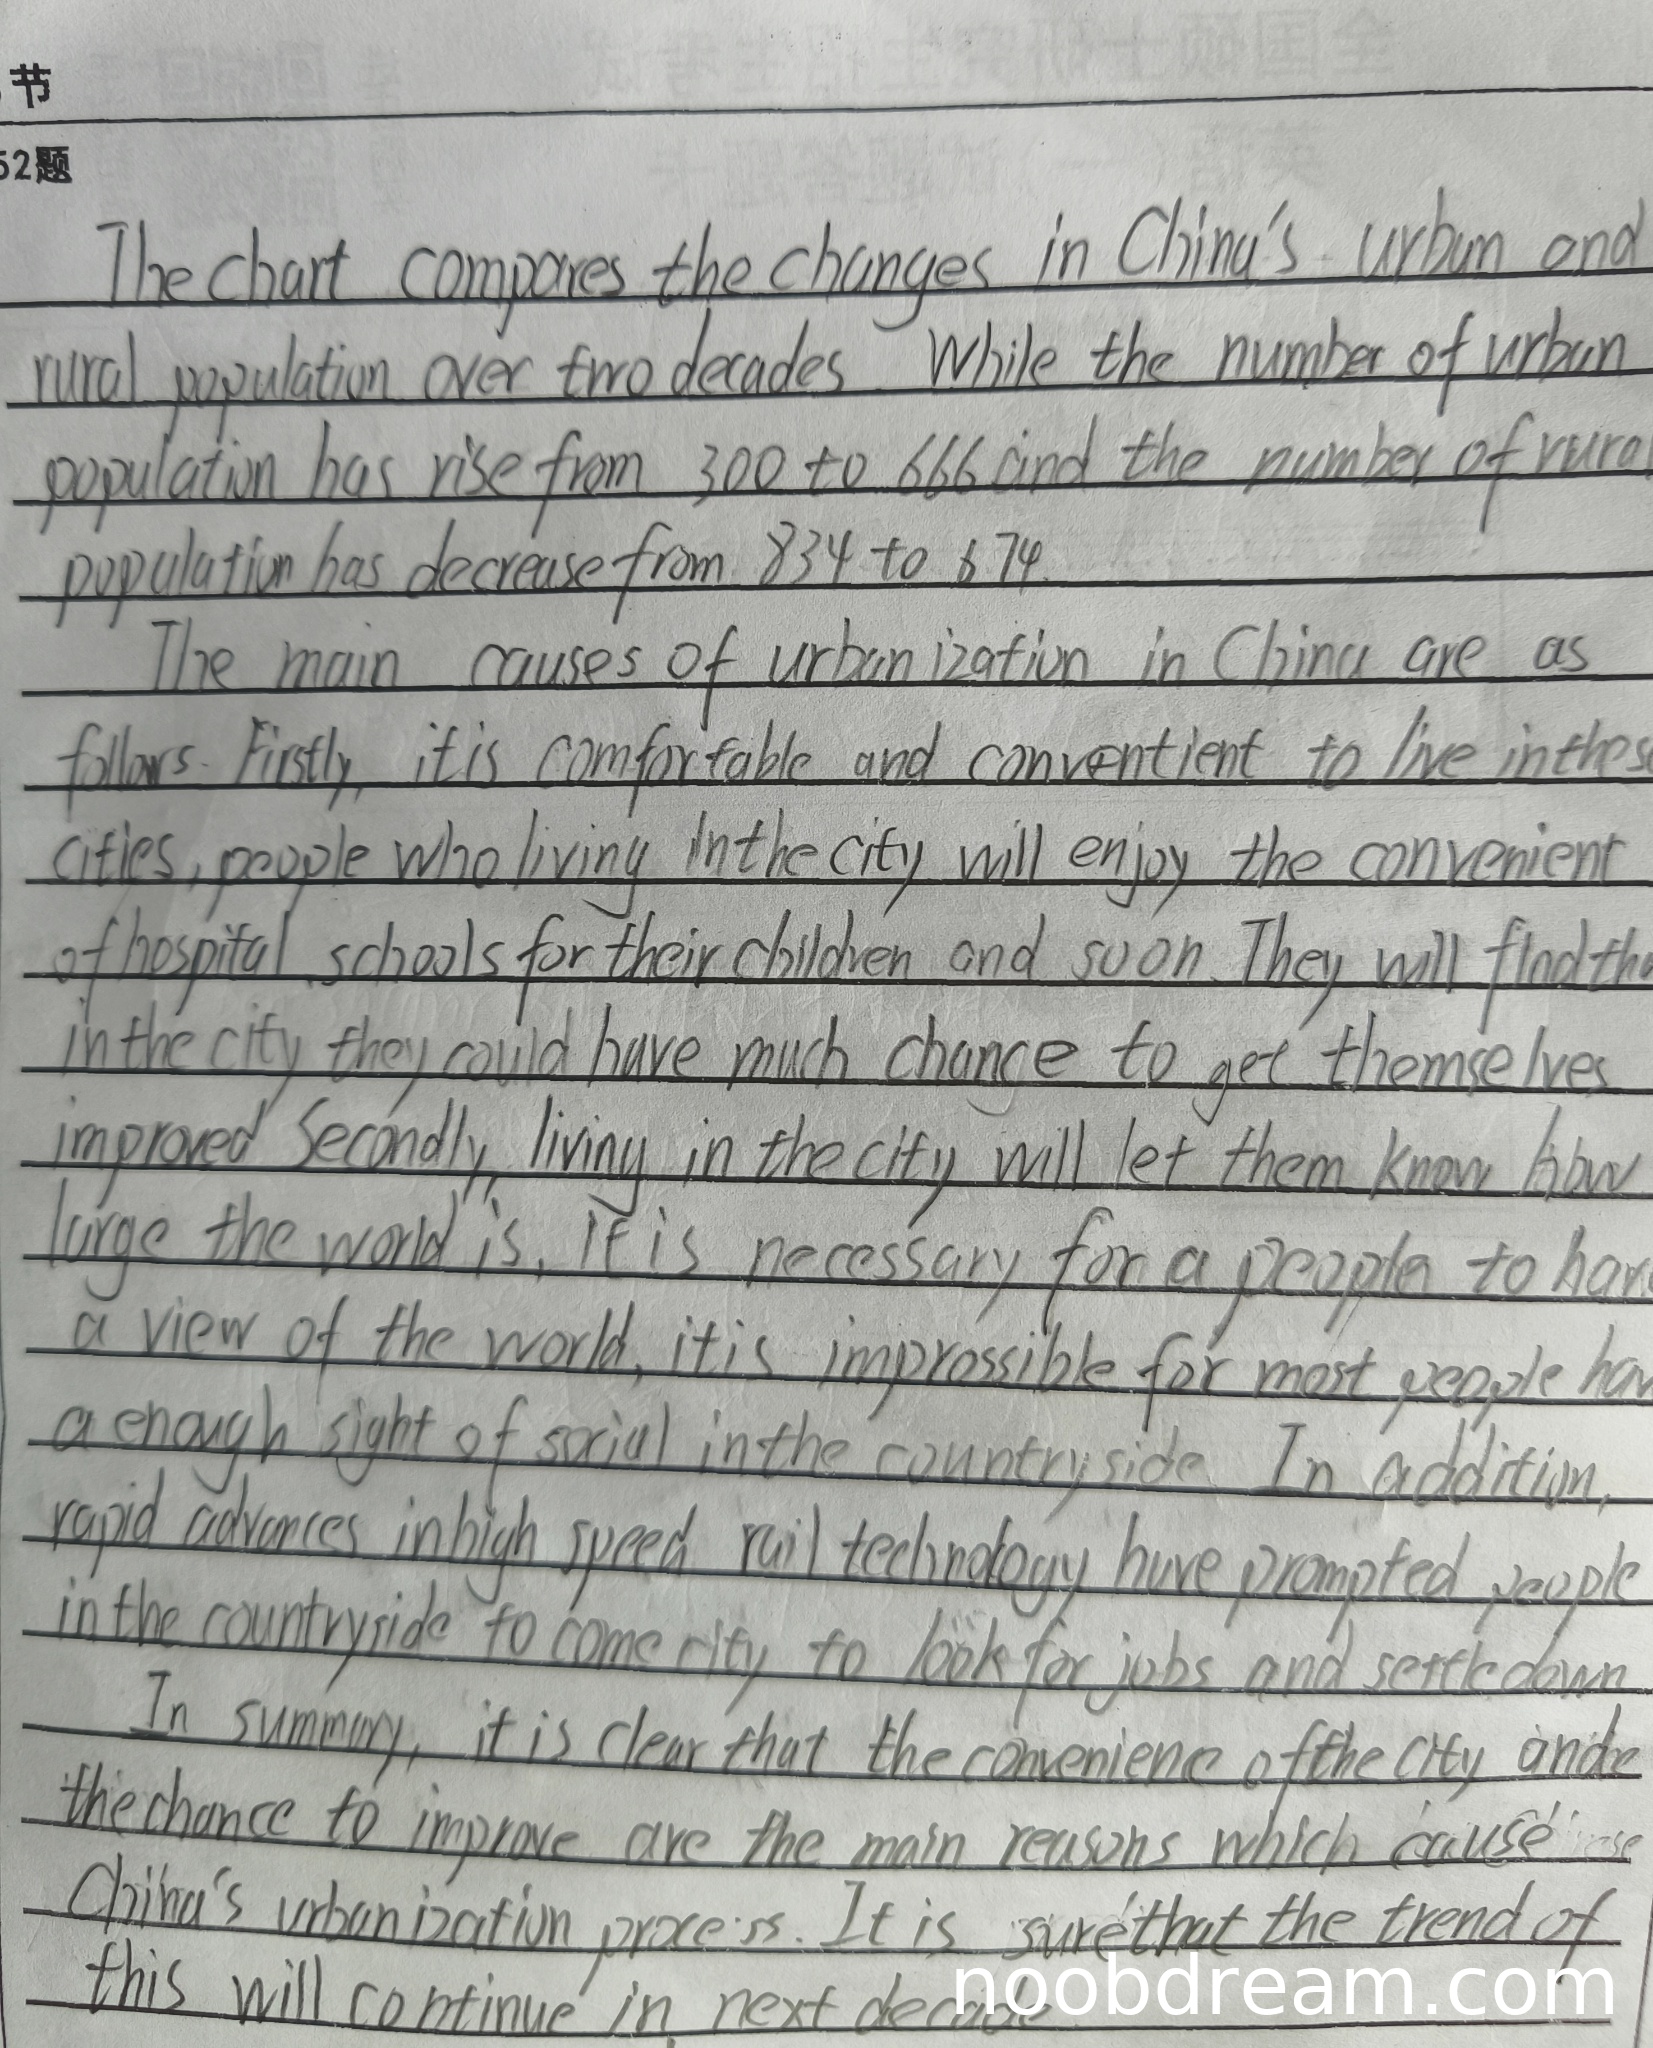 节
52题
The chart compares the changes in China's urban and
rural population over two decades. While the number of urban
population has rise from 300 to 666 and the number of rural
population has decrease from 834 to 674.
The main causes of urbanization in China are as
follows. Firstly, it is comfortable and conventient to live in these
cities, people who living in the city will enjoy the convenient
of hospital, schools for their children and so on. They will find tha
in the city they could have much chance to get themselves
improved Secondly, living in the city will let them know how
large the world is, it is necessary for a people to have
a view of the world, it is improssible for most people hav
a enough sight of social in the countryside. In addition,
rapid advances in high speed rail technology have prompted people
in the countryside to come city to look for jobs and settle down
In summary, it is clear that the convenienc of the city and
the chance to improve are the main reasons which cause
China's urbanization process. It is sure that the trend of
this will continue in next decade
noobdream.com